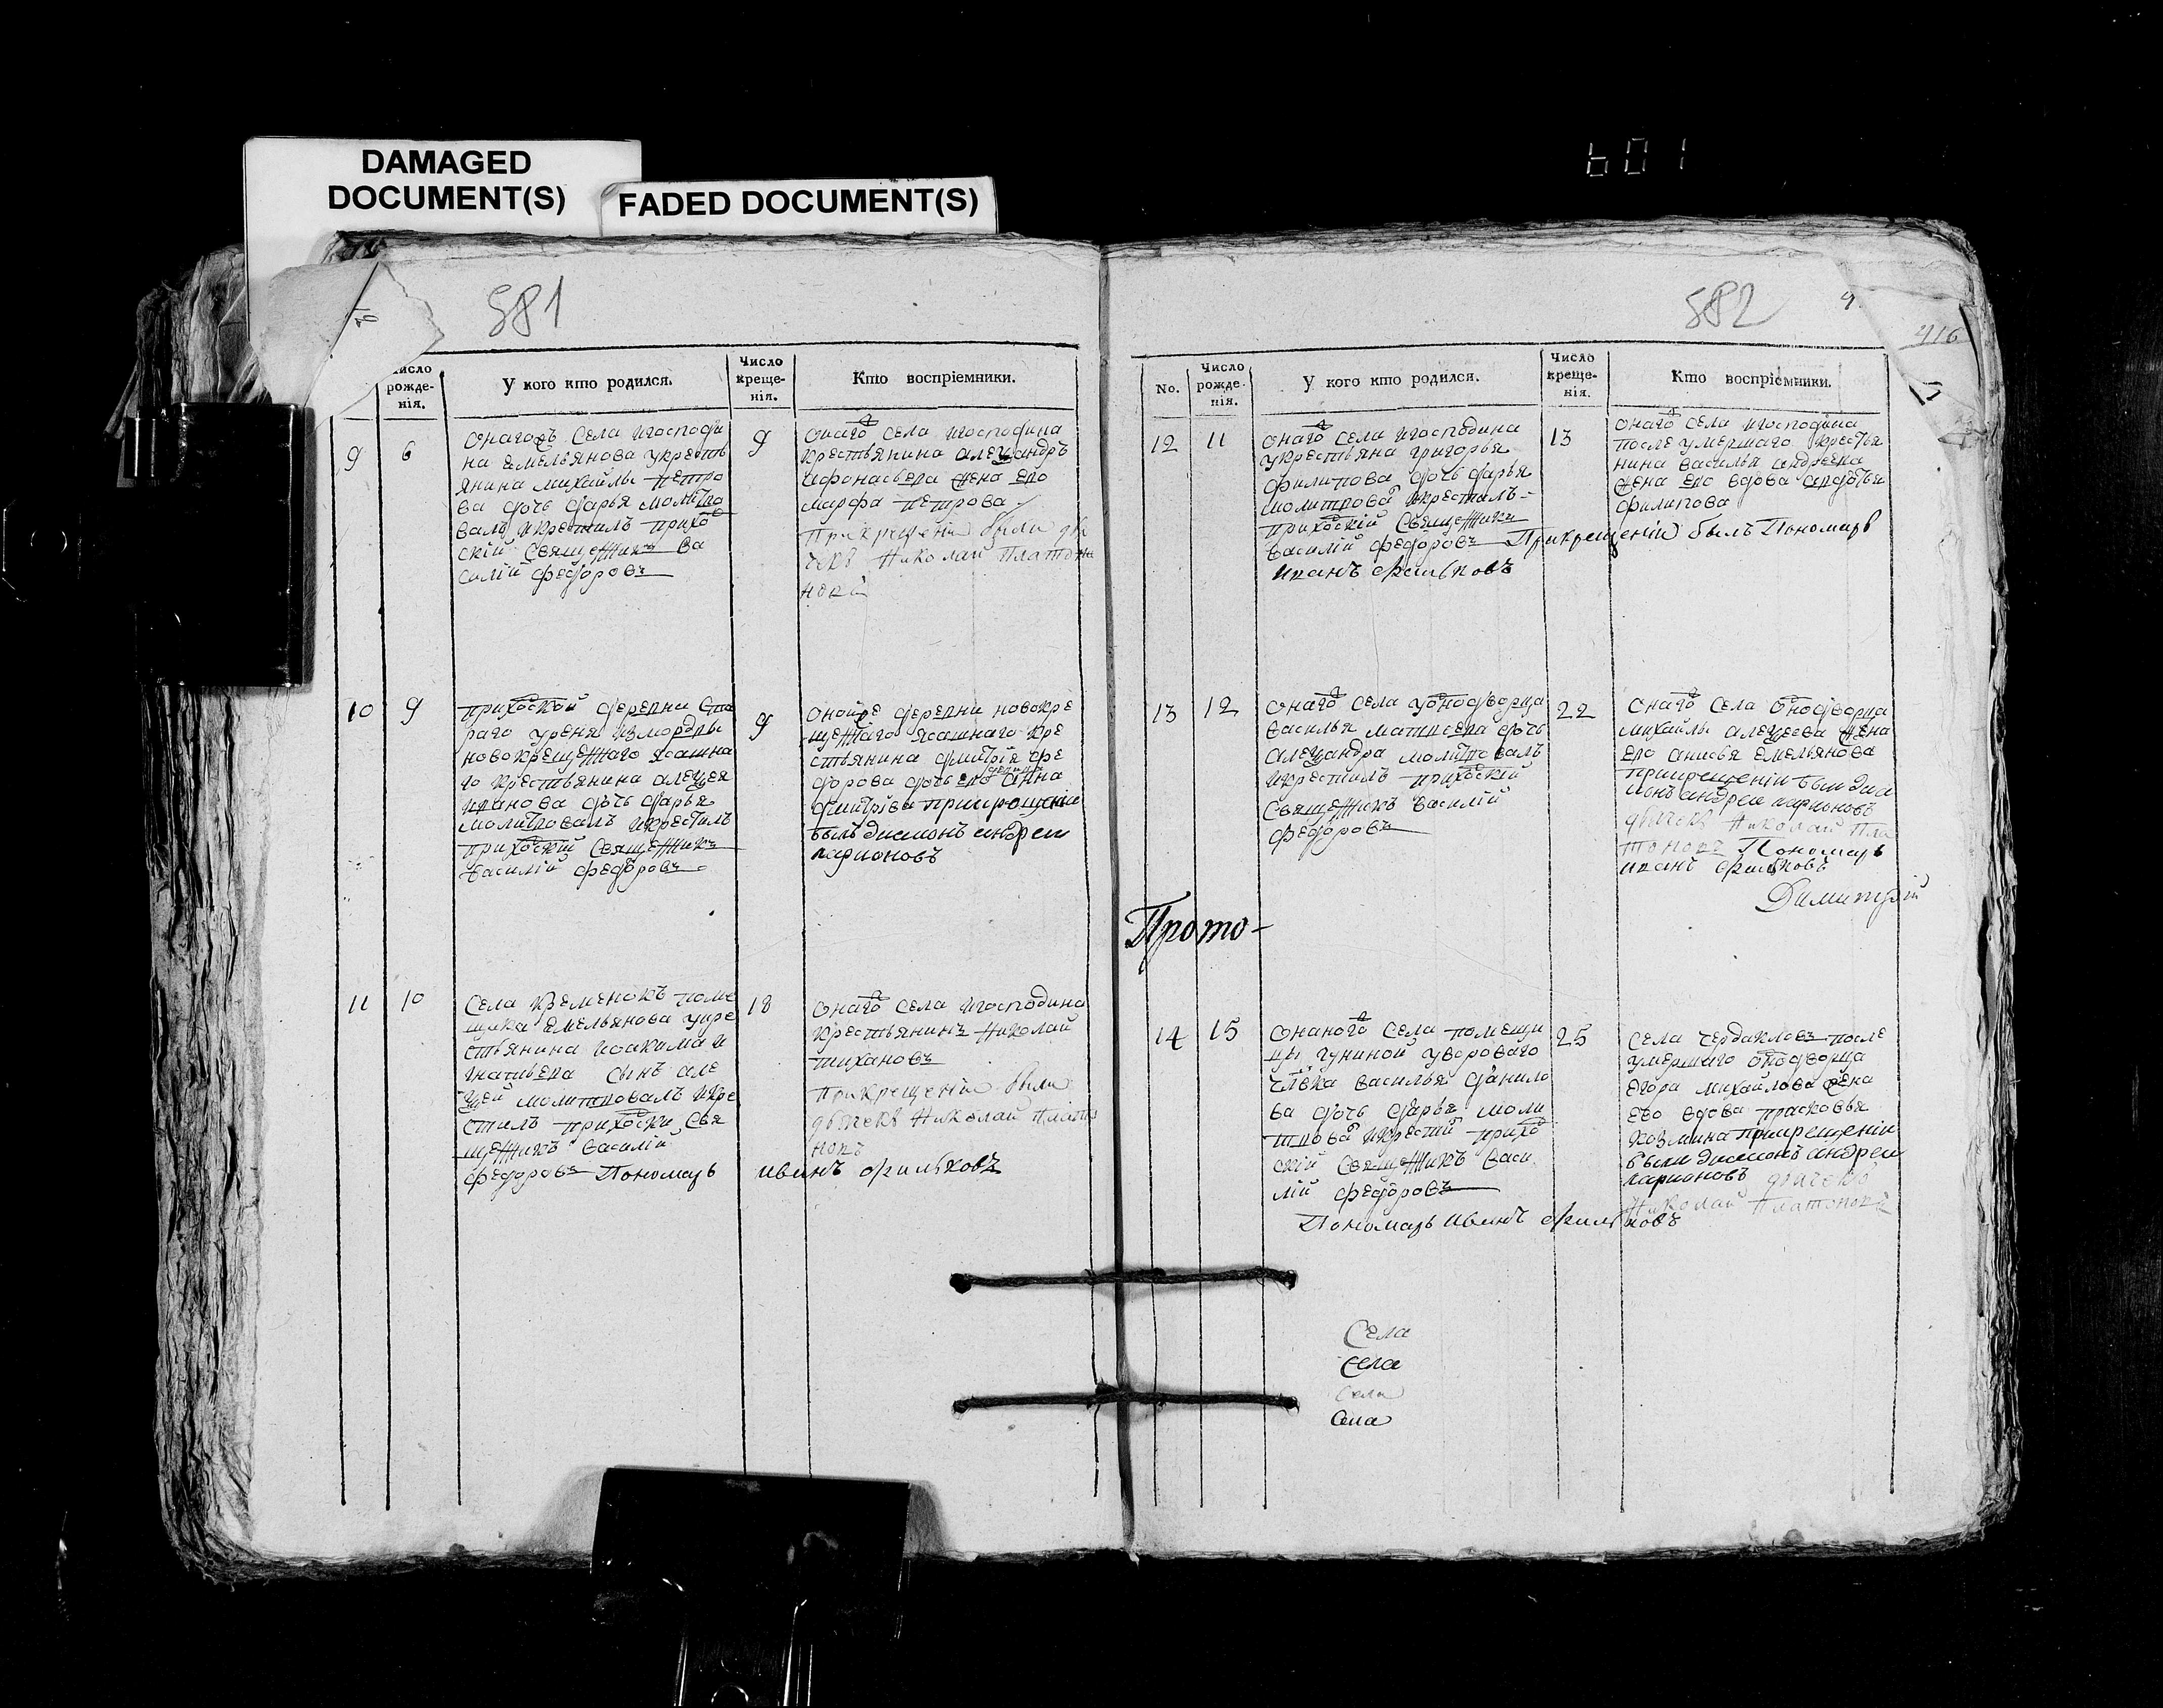 DAMAGED
DOCUMENT(S)
FADED DOCUMENT(S)
581
Число
рожде-
нія.
У кого кто родился.
Число
креще-
нія.
Кто воспріемники.
9
6
села игосподи
на емельянова укресть
янина михайлы петро
ва дочь дарья молитво
валъ икрестилъ прихо
скій священикъ ва
силій федоровъ
9
онаго села игосподина
крестьянина алеѯандръ
афонасьева жена ево
марфа петрова
прикрещеніи были дья
чекъ Николай Платоно
10
9
прихоской деревни ста
раго уреня измордвы
новокрещенаго ясашна
го крестьянина алеѯея
иванова дочь дарья
молитвовалъ икрестилъ
прихоскій священикъ
василій федоровъ
9
деревни новокре
щенаго ясашнаго кре
стьянина дмитрія фе
дорова дочь ево девица анна
дмитріва прикрещеніи
былъ диаконъ андреи
ларионовъ
11
10
села кременокъ поме
щика емельянова укре
стьянина иоакима и
гнатьева сынъ але
ѯей молитвовалъ икре
стилъ прихоски свя
щеникъ василій
федоровъ Пономарь иванъ фильковъ
18
онаго села игосподина
крестьянинъ Николай
тихановъ
прикрещеніи были
дьячекъ Николай Плато
новъ
582
416
No.
Число
рожде-
нія.
У кого кто родился.
Число
креще-
нія.
Кто воспріемники.
12
11
онаго села игосподина
укрестьяна григорья
филипова дочь дарья
молитвова икрестилъ
прихоскій священикъ
василій федоровъ Прикрещеніи былъ Пономарь
иванъ фильковъ
13
онаго села игосподина
после умершаго крестья
нина василья андреева
жена ево вдова авдотья
филипова
13
12
онаго села уоноδворца
василья матвеева дочь
алеѯандра молитвовалъ
икрестилъ прихоскій
священикъ василій
федоровъ
22
онаго села оноδворца
михайлы алеѯеева жена
ево анисья емельянова
прикрещеніи были диа
конъ андреи ларионовъ
дьячекъ Николай Пла
тоновъ Пономарь
иванъ фильковъ
Димитрій
Прото-
14
15
онаного села помещи
цы гуниной удвороваго
члвка василья данило
ва дочь дарья моли
твова икрести прихо
скій священикъ васи
лій федоровъ
Пономарь иванъ фильковъ
25
села чердаковъ после
умершаго оноδворца
егора михайлова жена
ево вдова прасковья
козмина прикрещеніи
были диаконъ андреи
ларионовъ дьячекъ
Николай Платоновъ
Села
села
Села
села